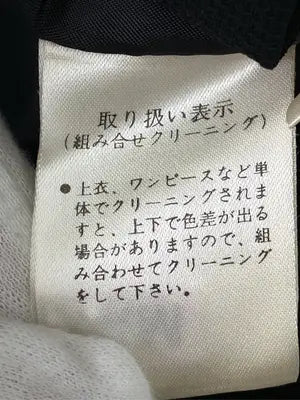 取り扱い表示
(組み合せクリーニング)
●上衣、ワンピースなど単
体でクリーニングされま
すと、上下で色差が出る
場合がありますので、組
み合わせてクリーニング
をして下さい。